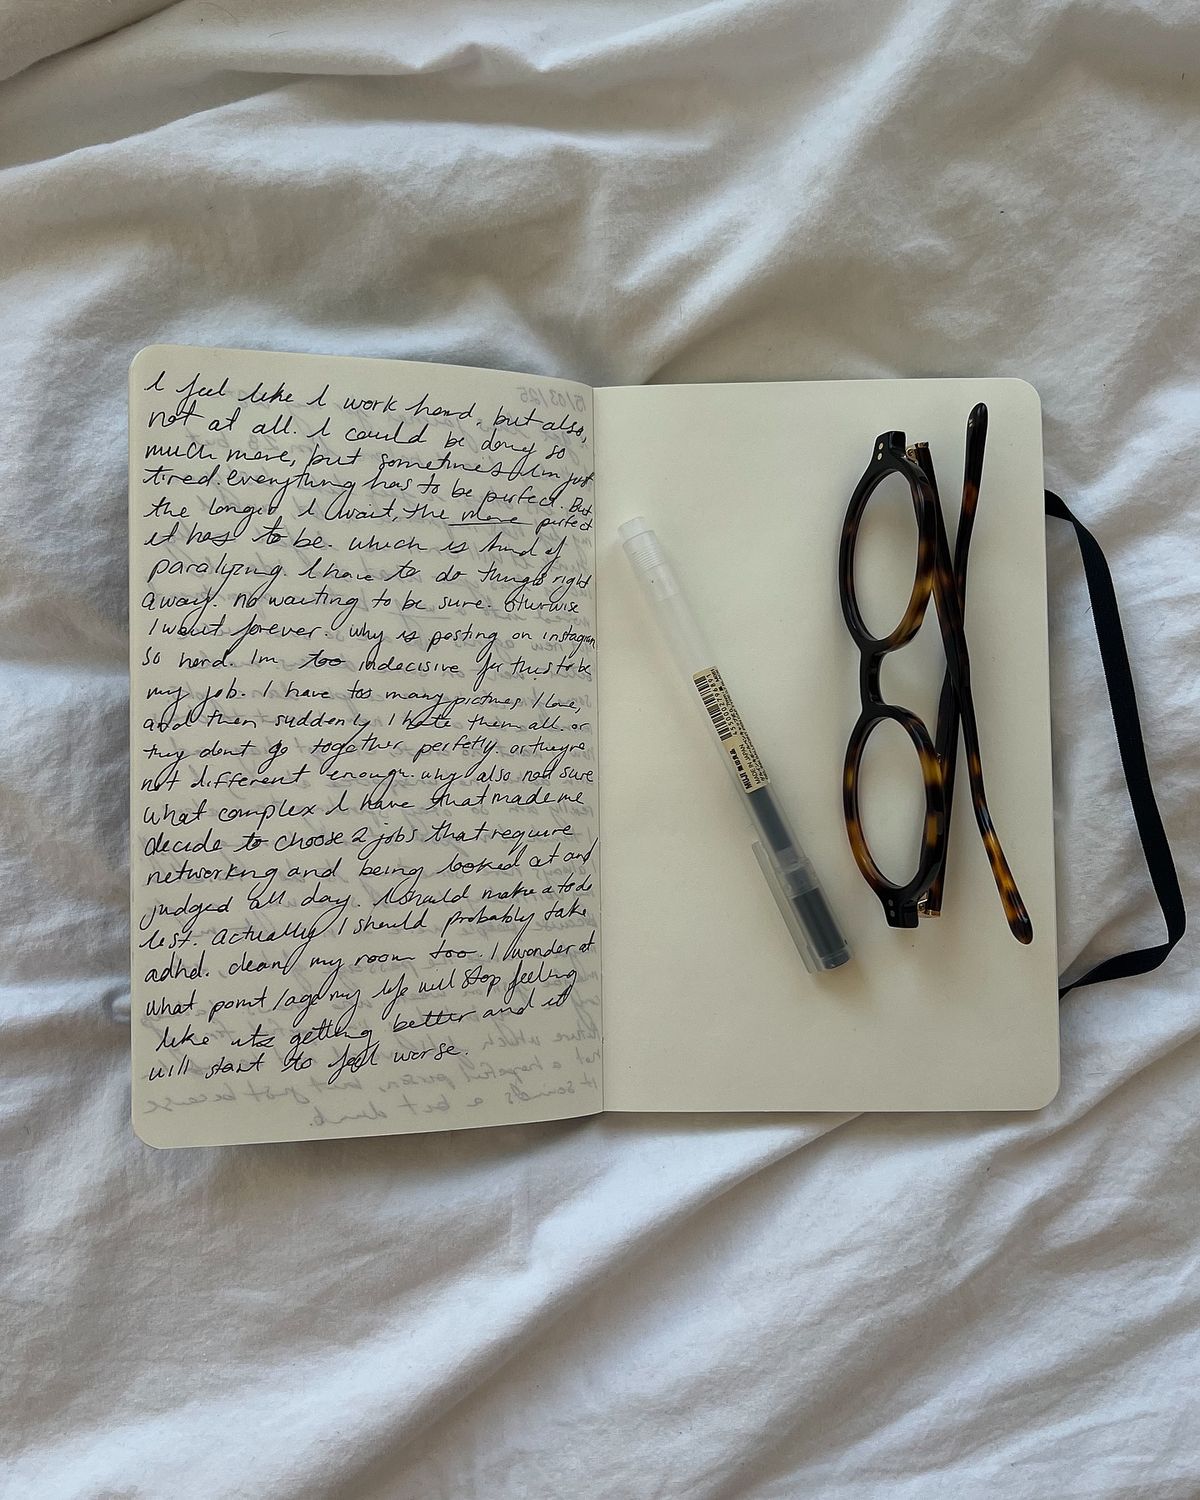 I feel like I work hard, but also,
not at all. I could be doing so
much more, but sometimes I'm just
tired. everything has to be perfect. But
the longer I wait, the more perfect
it has to be. which is kind of
paralyzing. I have to do things right
away. no waiting to be sure. Otherwise
I wait forever. why is posting on instagram
so hard. Im too indecisive for this to be
my job. I have too many pictures I love,
and then suddenly I hate them all. or
they dont go together perfetly. or theyre
not different enough. why also not sure
what complex I have that made me
decide to choose 2 jobs that require
networking and being looked at and
judged all day. I should make a to do
list. Actually I should probably take
adhd. clean my room too. I wonder at
what point/age my life will stop feeling
like its getting better and it
will start to feel worse.
15/03/25
not a hopeful person, but just because
it sounds a bit dumb.
MUJI 無印良品
MADE IN JAPAN